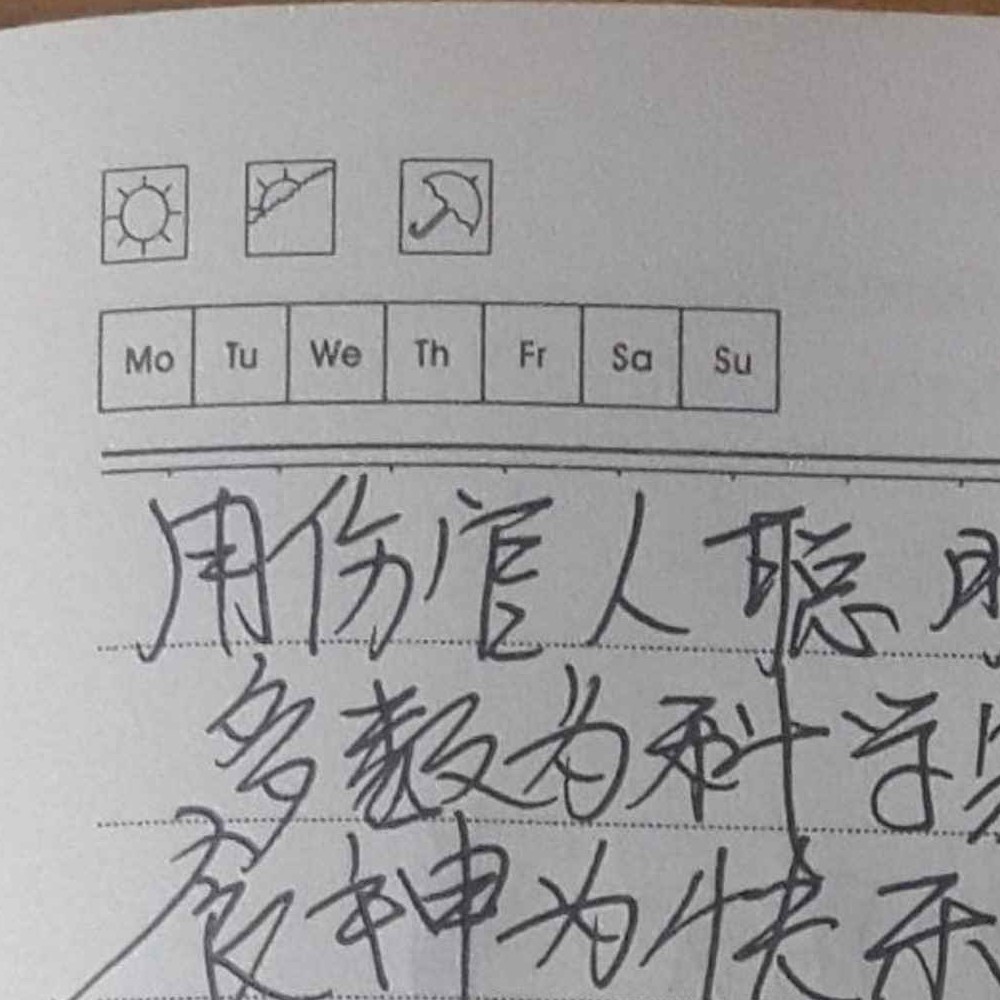 Mo Tu We Th Fr Sa Su
用伤官人聪明
多数为科学
食神为快乐